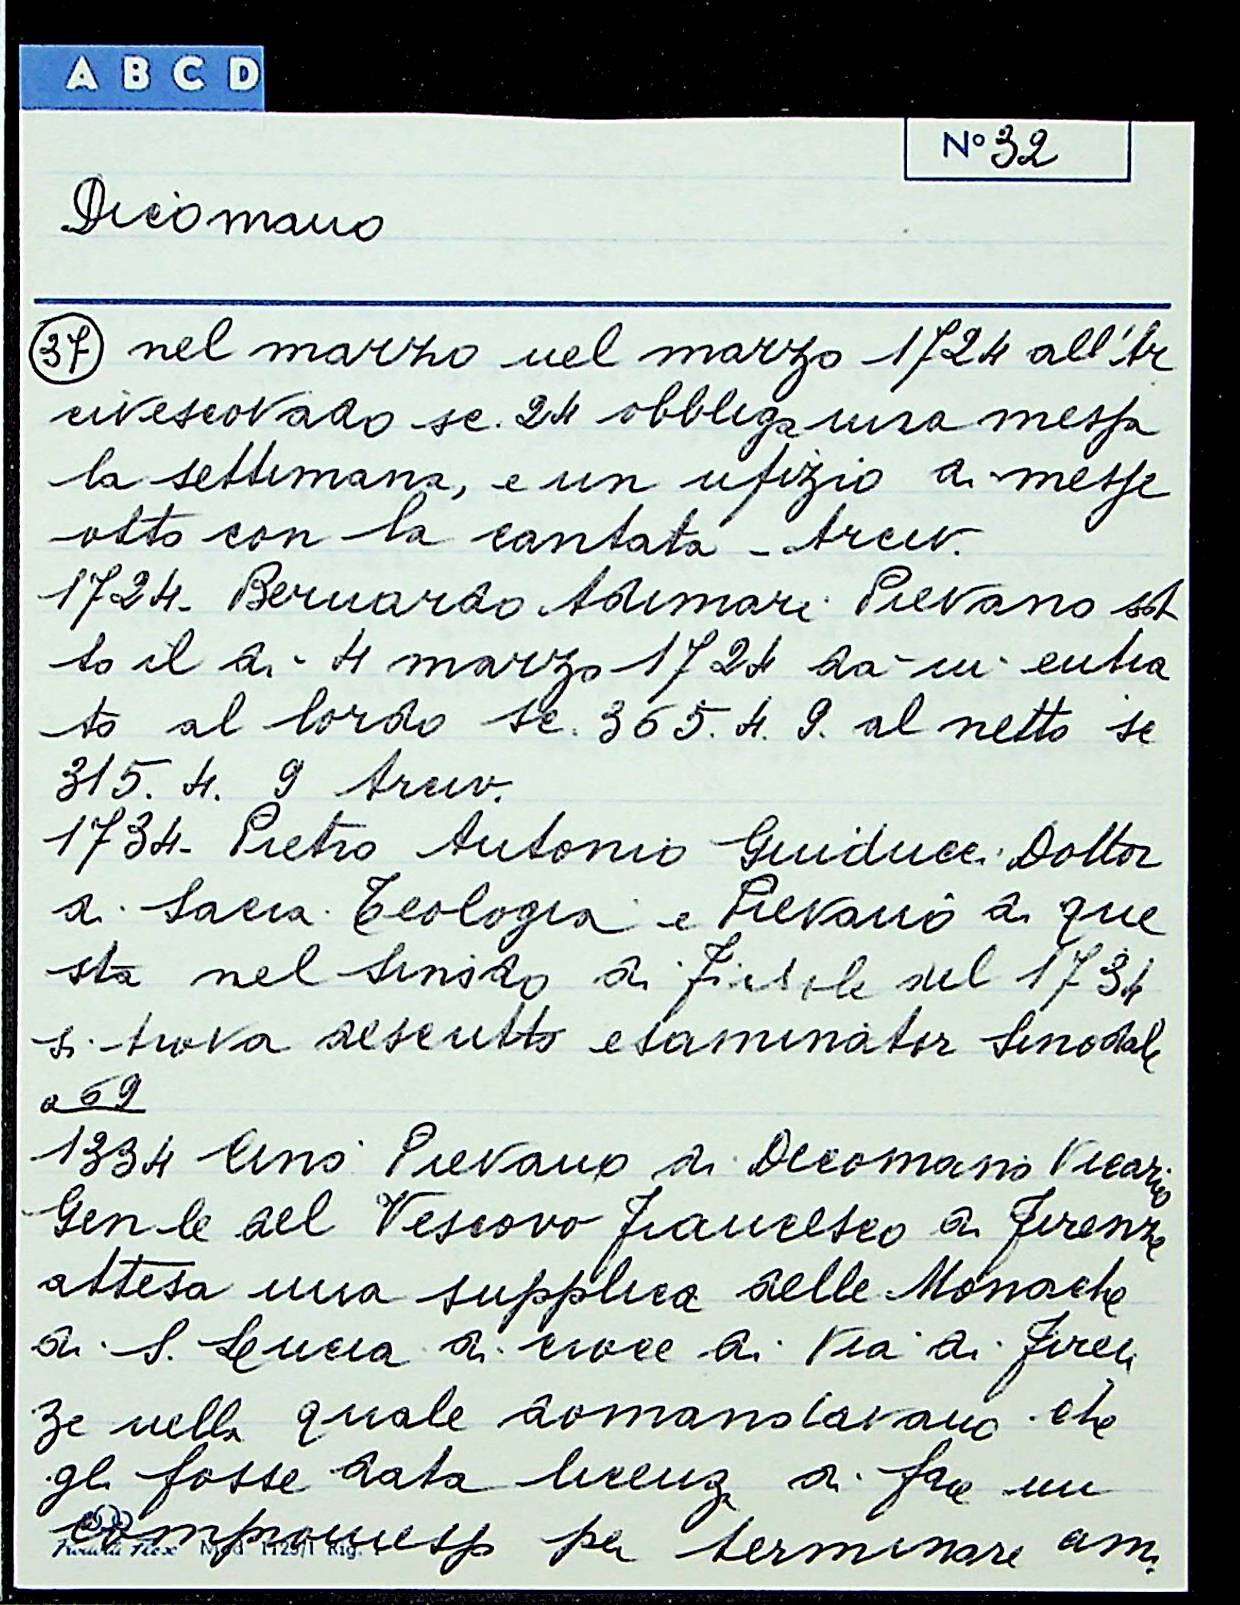 A B C D
N° 32
Dicomano
37 nel marzo nel marzo 1724 all'Ar
civescovado sc. 24 obbliga una messa
la settimana, e un ufizio di messe
otto con la cantata - Arciv.
1724- Bernardo Adimari Pievano sot
to il di - 4 marzo 1724 dà in entra
ta al lordo sc. 365. 4. 9. al netto sc
315. 4. 9 Arciv.
1734- Pietro Antonio Guiducci Dottor
di Sacra Teologia e Pievano di que
sta nel Sinodo di Fiesole del 1734
si trova descritto esaminator Sinodale
a 69
1334 Cino Pievano di Decomano Vicario
Gen-le del Vescovo Francesco di Firenze
attesa una supplica delle Monache
di S. Lucia di croce di Via di Firen
ze nella quale domandavano che
gli fosse data licenza di fare un
compromesso per terminare ami
Mod. 1129/1 Rig.